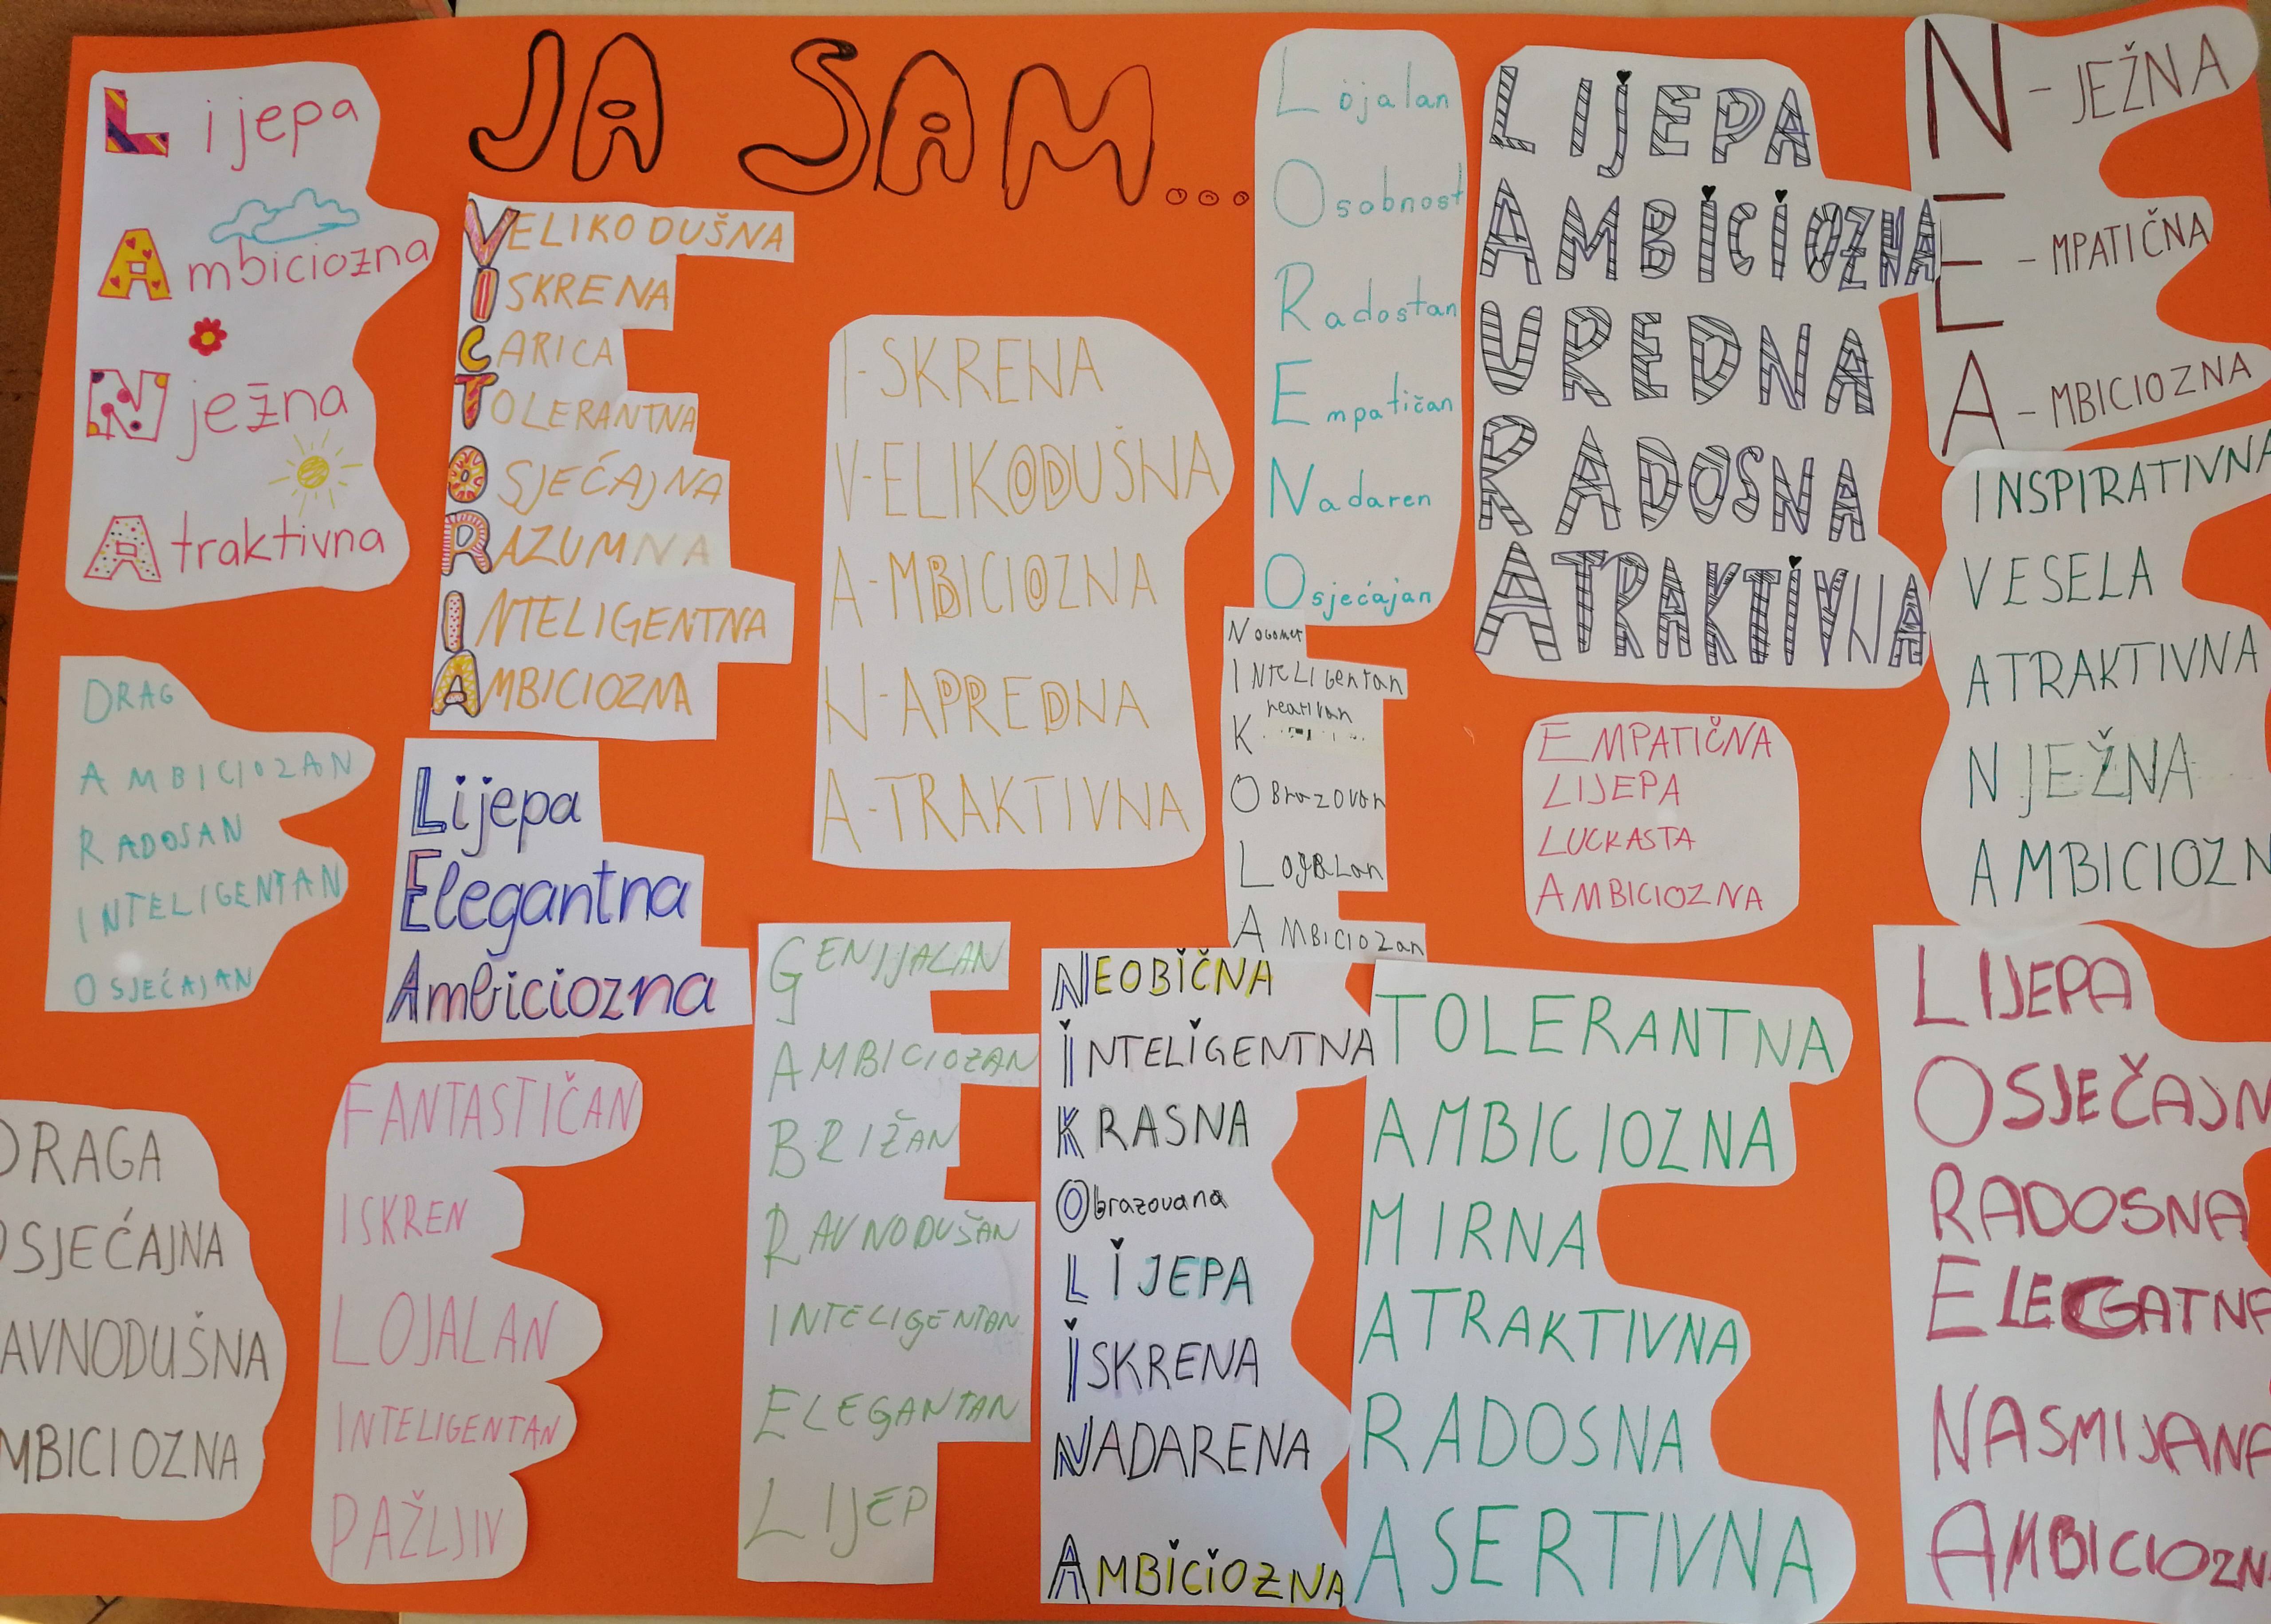 JA SAM...
Lijepa
Ambiciozna
Nježna
Atraktivna
VELIKODUŠNA
ISKRENA
CARICA
TOLERANTNA
OSJEĆAJNA
RAZUMNA
INTELIGENTNA
AMBICIOZNA
I-SKRENA
V-ELIKODUŠNA
A-MBICIOZNA
N-APREDNA
A-TRAKTIVNA
Lojalan
Osobnost
Radostan
Empatičan
Nadaren
Osjećajan
LIJEPA
AMBICIOZNA
UREDNA
RADOSNA
ATRAKTIVNA
N-JEŽNA
E-MPATIČNA
A-MBICIOZNA
INSPIRATIVNA
VESELA
ATRAKTIVNA
NJEŽNA
AMBICIOZN
DRAG
AMBICIOZAN
RADOSAN
INTELIGENTAN
OSJEĆAJAN
Lijepa
Elegantna
Ambiciozna
Nogomet
INTELIGentan
Kreativan
OBrazovan
LOJALan
AMBICIOZan
EMPATIČNA
LIJEPA
LUCKASTA
AMBICIOZNA
DRAGA
OSJEĆAJNA
AVNODUŠNA
MBICIOZNA
FANTASTIČAN
ISKREN
LOJALAN
INTELIGENTAN
PAŽLJIV
GENIJALAN
AMBICIOZAN
BRIŽAN
RAVNODUŠAN
INTELIGENTAN
ELEGANTAN
LIJEP
NEOBIČNA
INTELIGENTNA
KRASNA
Obrazovana
LIJEPA
ISKRENA
NADARENA
AMBICIOZNA
TOLERANTNA
AMBICIOZNA
MIRNA
ATRAKTIVNA
RADOSNA
ASERTIVNA
LIJEPA
OSJEČAJN
RADOSNA
ELEGATNA
NASMIJANA
AMBICIOZN